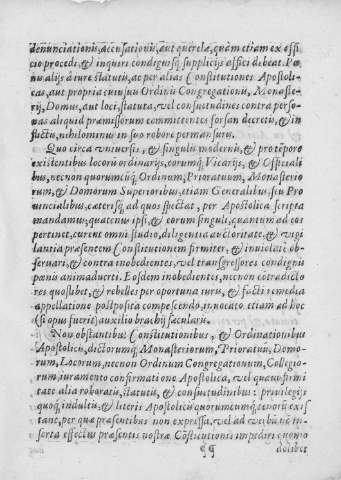 denunciationis, accusationis, aut querelæ, quàm etiam ex offi
cio procedi, & inquiri condignisq́; supplicijs affici debeat. Pœ
nis alijs à iure statutis, ac per alias Constitutiones Apostoli-
cas, aut propria cuiusuis Ordinis Congregationis, Monaste-
rij, Domus, aut loci, statuta, vel consuetudines contra perso-
nas aliquid præmissorum committentes forsan decretis, & in
flictis, nihilominus in suo robore permansuris.
Quo circa vniuersis, & singulis modernis, & pro tẽpore
existentibus locorũ ordinarijs, eorumq́; Vicarijs, & Officiali
bus, necnon quorumcũq; Ordinum, Prioratuum, Monasterio
rum, & Domorum Superioribus, etiam Generalibus, seu Pro
uincialibus, cæterisq́; ad quos spectat, per Apostolica scripta
mandamus, quatenus ipsi, & eorum singuli, quantum ad eos
pertinet, curent omni studio, diligentia auctoritate, & vigi
lantia præsentem Constitutionem firmiter, & inuiolatè ob-
seruari, & contra inobedientes, vel transgressores condignis
pœnis animaduerti. Eosdem inobedientes, necnon cõtradicto
res quoslibet, & rebelles per oportuna iuris, & facti remedia
appellatione postposita compescendo, inuocato etiam ad hoc
(si opus fuerit) auxilio brachij sæcularis.
Non obstantibus Constitutionibus, & Ordinationibus
Apostolicis, dictorumq́; Monasteriorum, Prioratuũ, Domo-
rum, Locorum, necnon Ordinum Congregationum, Collegio-
rum, iuramento confirmatione Apostolica, vel quauis firmi
tate alia roboratis, statutis, & consuetudinibus: priuilegijs
quoq́; indultis, & literis Apostolicis quorumcumq́; tenoris exis
tant, per quæ præsentibus non expressa, vel ad verbũ nõ in-
serta effectus præsentis nostræ Cõstitutionis impediri quomo
¶¶ dolibet